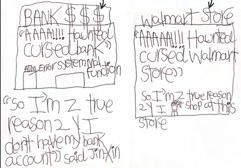 BANK $ $ $
"AAAAA!!! Haunted
cursed bank"
Error system mal
function
"so I'm z true
reason 2 Y I
dont have my bank
account" said Jinxin
Walmart Store
"AAAAA!!! Haunted
cursed Walmart
Store"
"so I'm z true reason
2 Y I shop at this
store